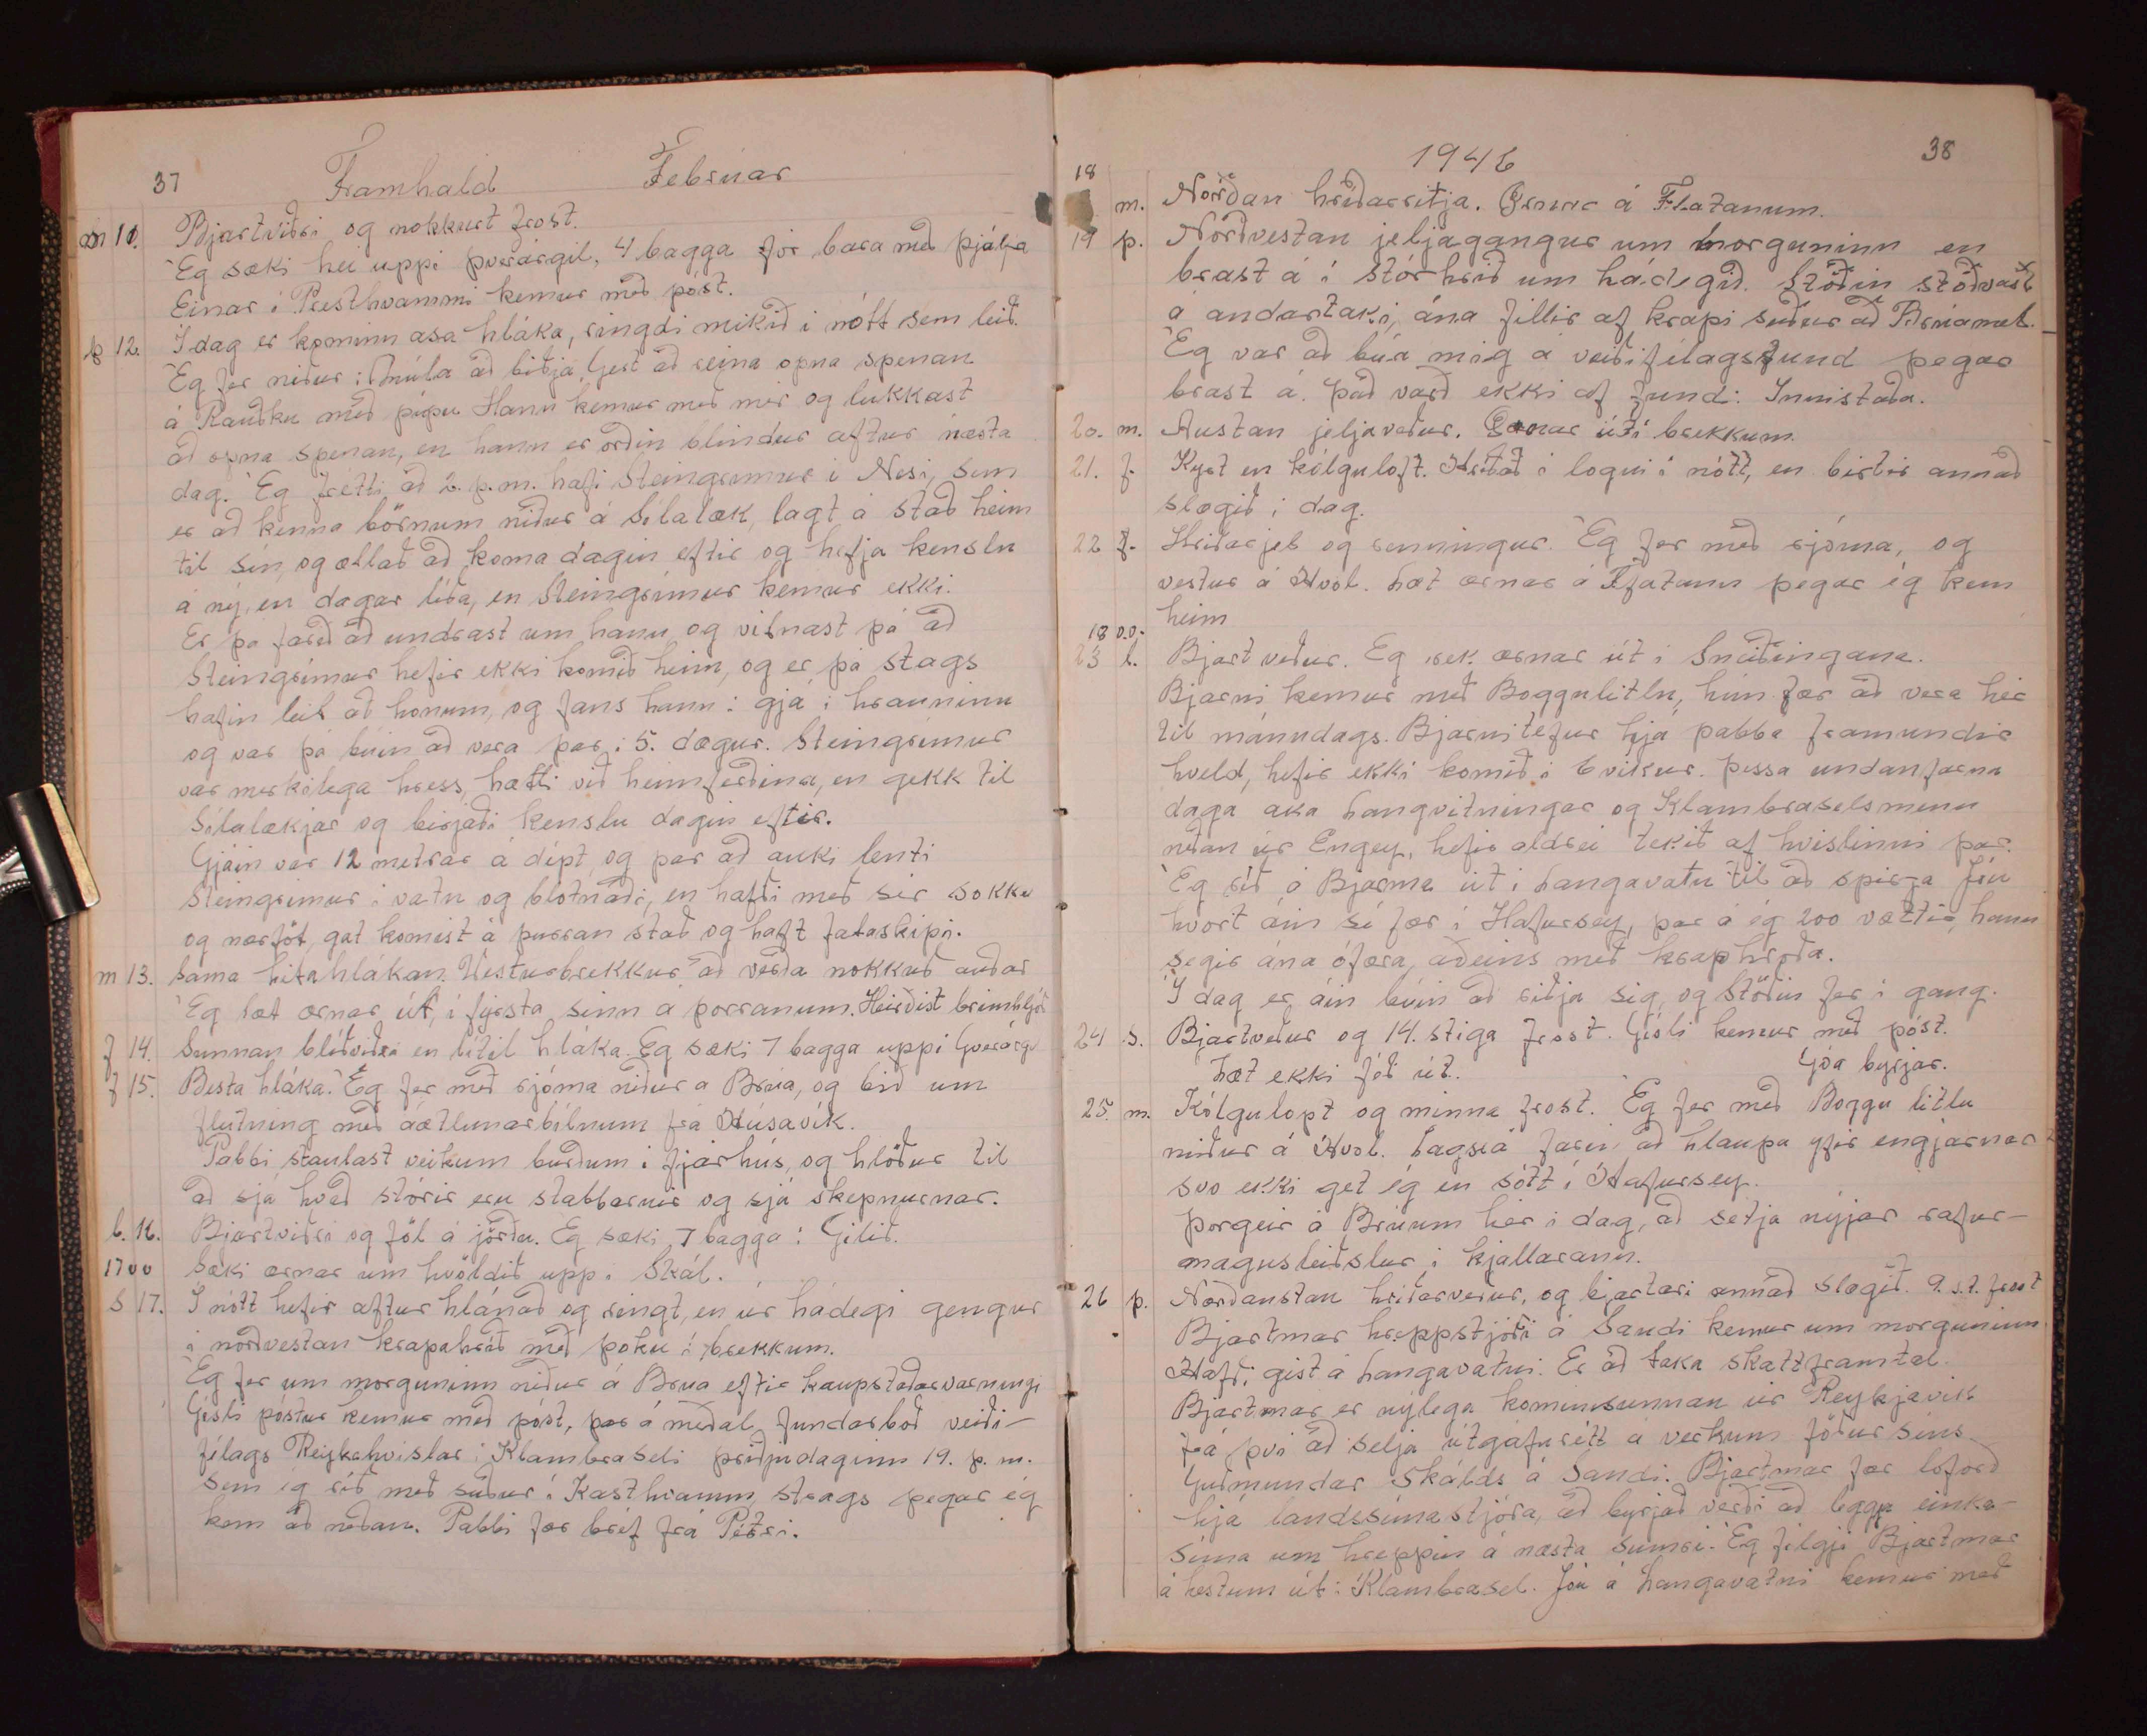 37 Framhald Febrúar
m 11. Bjartviðri og nokkurt frost.
Eg sæki hei uppi þverárgil, 4 bagga fór bara með þjálfa
Einar í Presthvammi kemur með póst.
þ 12. Í dag er kominn asa hláka, ringdi mikið í nótt sem leið.
Eg fer niður í Múla að biðja Gest að reina opna spenan
á Rauðku með pípu Hann kemur með mér og lukkast
að opna spenan, en hann er orðin blindur aftur næsta
dag. Eg frétti að 2. þ.m. hafi Steingrímur í Nesi, sem
er að kenna börnum niður á Sílalæk, lagt á stað heim
til sín, og ætlað að koma dagin eftir og hefja kenslu
á ný, en dagar líða, en Steingrímur kemur ekki.
Er þá farið að undrast um hann og vitnast þá að
Steingrímur hefir ekki komið heim, og er þá strags
hafin leit að honum, og fans hann í gjá í hrauninu
og var þá búin að vera þar í 5. dægur. Steingrímur
var merkilega hress, hætti við heimferðina, en gekk til
Sílalækjar og birjaði kenslu dagin eftir.
Gjáin var 12 metrar á dípt og þar að auki lenti
Steingrímur í vatn og blotnaði, en hafði með sér sokka
og nærföt, gat komist á þurran stað og haft fataskipti.
m 13. Sama hitahlákan. Vesturbrekkur að verða nokkuð auðar
Eg læt ærnar út, í fyrsta sinn á þorranum. Heirðist brimhljóð
f 14. Sunnan blíðviðri en lítil hláka. Eg sæki 7 bagga uppi Þverárgil
f 15. Besta hláka. Eg fer með rjóma niður á Brúa, og bið um
flutning með áætlunarbílnum frá Húsavík.
Pabbi staulast veikum burðum í fjárhús, og hlöður til
að sjá hvað stórir eru stabbarnir og sjá skepnurnar.
l. 16. Bjartviðri og föl á jörðu. Eg sæki 7 bagga í Gilið.
1700 Sæki ærnar um kvöldið upp í Skál.
S 17. Í nótt hefir aftur hlánað og ringt, en úr hádegi gengur
í norðvestan krapahríð með þoku í brekkum.
Eg fer um morguninn niður á Brúa eftir kaupstaðarvarningi
Gísli póstur kemur með póst, þar á meðal fundarboð veiði-
félags Reykjahvíslar í Klambraseli þriðjudaginn 19. þ. m.
sem ég ríð með suður í Kasthvamm, strags þegar ég
kem að neðan. Pabbi fær bréf frá Pétri.
1946 38
18 m. Norðan hríðarritja. Ærnar á Flatanum.
19 þ. Norðvestan jeljagangur um morguninn en
brast á í stórhríð um hádegið. Stöðin stöðvast
á andartaki, ána fillir af krapi suður að Brúamel.
Eg var að búa mig á veiðifélagsfund þegar
brast á. Það varð ekki af fundi. Innistaða.
20. m. Austan jeljaveður. Ærnar úti í brekkum.
21. f. Kyrt en kólguloft. Hríðað í logni í nótt, en birtir annað
slagið í dag.
22 f. Hríðarjel og renningur. Eg fer með rjóma, og
vestur á Hvol. Læt ærnar á Flatann þegar ég kem
heim
18 o.o.
23 l. Bjart veður. Eg rek ærnar út í Sneiðingana.
Bjarni kemur með Boggulitlu, hún fær að vera hér
til mánudags. Bjarni tefur hjá pabba framundir
kveld, hefir ekki komið í 6 vikur. Þessa undanfarna
daga aka Langvitningar og Klambraselsmenn
neðan úr Engey, hefir aldrei tekið af kvíslinni þar.
Eg ríð á Bjarma út í Langavatn til að spirja Jón
hvort áin sé fær í Hafursey, þar á ég 200 vættir, hann
segir ána ófæra, aðeins með kraphroða.
Í dag er áin búin að riðja sig, og Stöðin fer í gang.
24 S. Bjartveður og 14. stiga frost. Gísli kemur með póst.
Læt ekki féð út. Góa byrjar.
25. m. Kólgulopt og minna frost. Eg fer með Boggu litlu
niður á Hvol. Lagsrá farin að hlaupa yfir engjarnar
svo ekki get ég en sótt í Hafursey.
Þorgeir á Brúum hér í dag, að setja nýjar rafur-
magnsleiðslur, í kjallarann.
26 þ. Norðaustan hríðarveður, og bjartari annað slagið. 9. s.t. frost
Bjartmar hreppstjóri á Sandi kemur um morguninn
Hafði gist á Langavatni. Er að taka skattframtal.
Bjartmar er nýlega kominn sunnan úr Reykjavík
frá því að selja útgáfurétt á verkum föður síns
Guðmundar Skálds á Sandi. Bjartmar fær loforð
hjá landssímastjóra, að byrjað verði að leggja einka-
síma um hreppin á næsta sumri. Eg filgi Bjartmar
á hestum út í Klambrasel. Jón á Langavatni kemur með